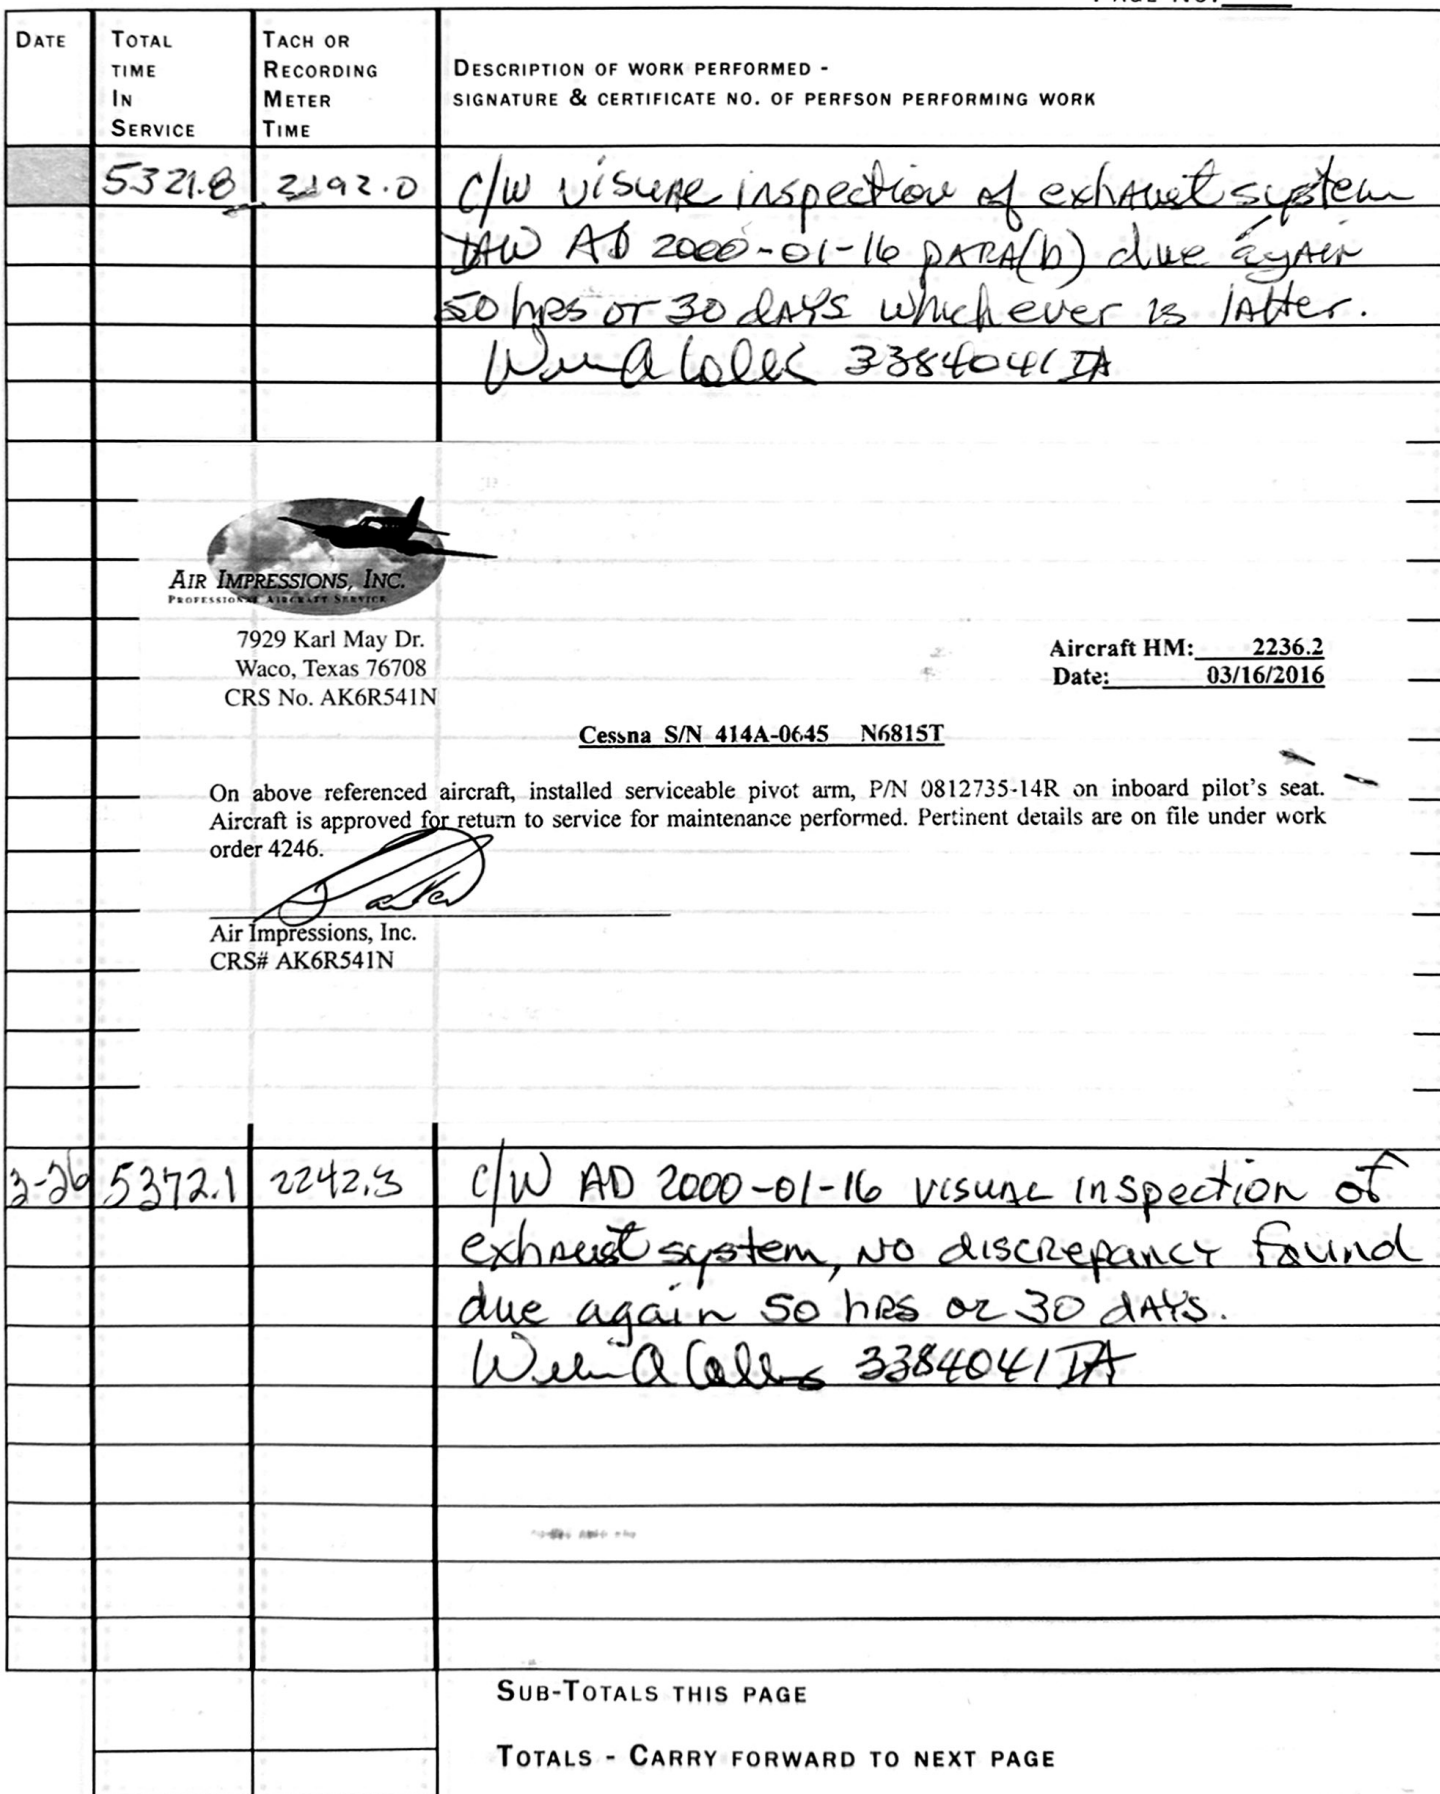 DATE
TOTAL TIME IN SERVICE
TACH OR RECORDING METER TIME
DESCRIPTION OF WORK PERFORMED -
SIGNATURE & CERTIFICATE NO. OF PERFSON PERFORMING WORK
5321.8 2192.0 C/W visual inspection of exhaust system
IAW AD 2000-01-16 PARA(b) due again
50 hrs or 30 days whichever is latter.
3384041 IA
AIR IMPRESSIONS, INC.
PROFESSIONAL AIRCRAFT SERVICE
7929 Karl May Dr.
Waco, Texas 76708
CRS No. AK6R541N
Aircraft HM: 2236.2
Date: 03/16/2016
Cessna S/N 414A-0645 N6815T
On above referenced aircraft, installed serviceable pivot arm, P/N 0812735-14R on inboard pilot's seat.
Aircraft is approved for return to service for maintenance performed. Pertinent details are on file under work
order 4246.
Air Impressions, Inc.
CRS# AK6R541N
3-26 5372.1 2242.3 C/W AD 2000-01-16 visual inspection of
exhaust system, No discrepancy found
due again 50 hrs or 30 days.
3384041 IA
SUB-TOTALS THIS PAGE
TOTALS - CARRY FORWARD TO NEXT PAGE